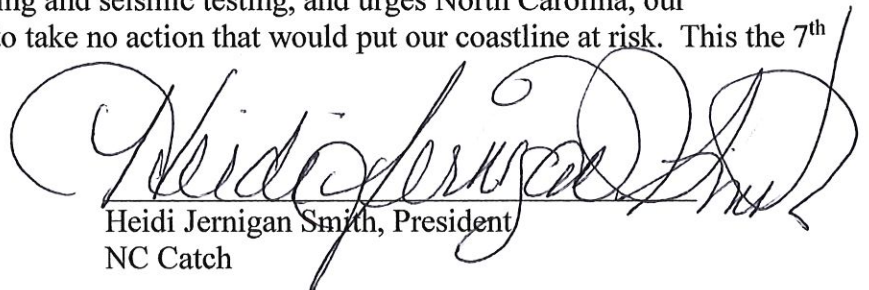 ing and seismic testing, and urges North Carolina, our
to take no action that would put our coastline at risk.  This the 7th
Heidi Jernigan Smith
Heidi Jernigan Smith, President
NC Catch